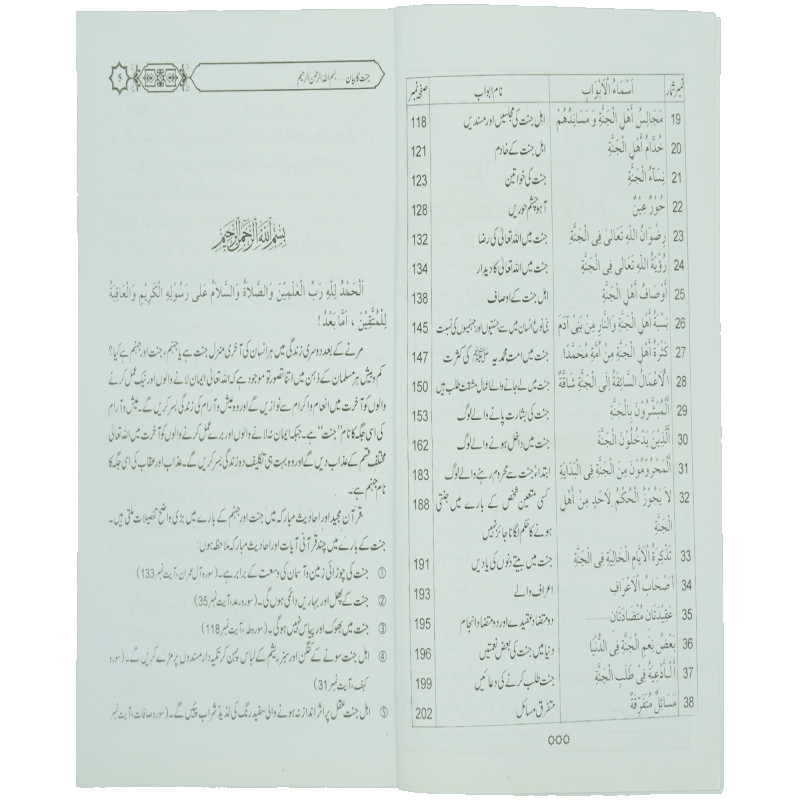 نمبر شمار اَسْمَاءُ الْاَبْوَابِ نام ابواب صفحہ نمبر
19 مَجَالِسُ اَهْلِ الْجَنَّةِ وَ مَسَانِدُهُمْ اہل جنت کی مجلسیں اور مسندیں 118
20 خُدَّامُ اَهْلِ الْجَنَّةِ اہل جنت کے خادم 121
21 نِسَآءُ الْجَنَّةِ جنت کی خواتین 123
22 حُوْرٌ عِيْنٌ آہو چشم حوریں 128
23 رِضْوَانُ اللهِ تَعَالٰى فِى الْجَنَّةِ جنت میں اللہ تعالیٰ کی رضا 132
24 رُؤْيَةُ اللهِ تَعَالٰى فِى الْجَنَّةِ جنت میں اللہ تعالیٰ کا دیدار 134
25 اَوْصَافُ اَهْلِ الْجَنَّةِ اہل جنت کے اوصاف 138
26 نِسْبَةُ اَهْلِ الْجَنَّةِ وَالنَّارِ مِنْ بَنِىْ آدَمَ بنی نوع انسان میں سے جنتیوں اور جہنمیوں کی نسبت 145
27 كَثْرَةُ اَهْلِ الْجَنَّةِ مِنْ اُمَّةِ مُحَمَّدًا جنت میں امت محمدیہ ﷺ کی کثرت 147
28 اَلْاَعْمَالُ السَّائِقَةُ اِلَى الْجَنَّةِ شَاقَّةٌ جنت میں لے جانے والے اعمال مشقت طلب ہیں 150
29 اَلْمُبَشَّرُوْنَ بِالْجَنَّةِ جنت کی بشارت پانے والے لوگ 153
30 اَلَّذِيْنَ يَدْخُلُوْنَ الْجَنَّةَ جنت میں داخل ہونے والے لوگ 162
31 اَلْمَحْرُوْمُوْنَ مِنَ الْجَنَّةِ فِى الْبِدَايَةِ ابتداءً جنت سے محروم رہنے والے لوگ 183
32 لَا يَجُوْزُ الْحُكْمُ لِاَحَدٍ مِنْ اَهْلِ کسی متعین شخص کے بارے میں جنتی 188
الْجَنَّةِ ہونے کا حکم لگانا جائز نہیں
33 تَذْكِرَةُ الْاَيَّامِ الْخَالِيَةِ فِى الْجَنَّةِ جنت میں بیتے دنوں کی یادیں 191
34 اَصْحَابُ الْاَعْرَافِ اعراف والے 193
35 عَقِيْدَتَانِ مُتَضَادَّتَانِ......... دو متضاد عقیدے اور دو متضاد انجام 195
36 بَعْضُ نِعَمِ الْجَنَّةِ فِى الدُّنْيَا دنیا میں جنت کی بعض نعمتیں 196
37 اَلْاَدْعِيَةُ فِىْ طَلَبِ الْجَنَّةِ جنت طلب کرنے کی دعائیں 199
38 مَسَائِلُ مُتَفَرِّقَةٌ متفرق مسائل 202
○○○
جنت کا بیان.....بسم اللہ الرحمٰن الرحیم 5
بِسْمِ اللهِ الرَّحْمٰنِ الرَّحِيْمِ
اَلْحَمْدُ لِلّٰهِ رَبِّ الْعٰلَمِيْنَ وَالصَّلَاةُ وَالسَّلَامُ عَلٰى رَسُوْلِهِ الْكَرِيْمِ وَالْعَاقِبَةُ
لِلْمُتَّقِيْنَ ، اَمَّا بَعْدُ !
مرنے کے بعد دوسری زندگی میں ہر انسان کی آخری منزل جنت ہے یا جہنم ، جنت اور جہنم ہے کیا؟
کم و بیش ہر مسلمان کے ذہن میں اتنا تصور تو موجود ہے کہ اللہ تعالیٰ ایمان لانے والوں اور نیک عمل کرنے
والوں کو آخرت میں انعام و اکرام سے نوازیں گے اور وہ عیش و آرام کی زندگی بسر کریں گے۔ عیش و آرام
کی اسی جگہ کا نام "جنت" ہے۔ جبکہ ایمان نہ لانے والوں اور برے عمل کرنے والوں کو آخرت میں اللہ تعالیٰ
مختلف قسم کے عذاب دیں گے اور وہ بہت ہی تکلیف دہ زندگی بسر کریں گے۔ عذاب اور عقاب کی اسی جگہ کا
نام جہنم ہے۔
قرآن مجید اور احادیث مبارکہ میں جنت اور جہنم کے بارے میں بڑی واضح تفصیلات ملتی ہیں۔
جنت کے بارے میں چند قرآنی آیات اور احادیث مبارکہ ملاحظہ ہوں:
① جنت کی چوڑائی زمین و آسمان کی وسعت کے برابر ہے۔ (سورہ آل عمران، آیت نمبر 133)
② جنت کے پھل اور بہاریں دائمی ہوں گی۔ (سورہ رعد، آیت نمبر 35)
③ جنت میں بھوک اور پیاس نہیں ہوگی۔ (سورہ طہ، آیت نمبر 118)
④ اہل جنت سونے کے کنگن اور سبز ریشم کے لباس پہن کر تکیہ دار مسندوں پر مزے کریں گے۔ (سورہ
کہف، آیت نمبر 31)
⑤ اہل جنت عقل پر اثر انداز نہ ہونے والی سفید رنگ کی لذیذ شراب پئیں گے۔ (سورہ صافات، آیت نمبر